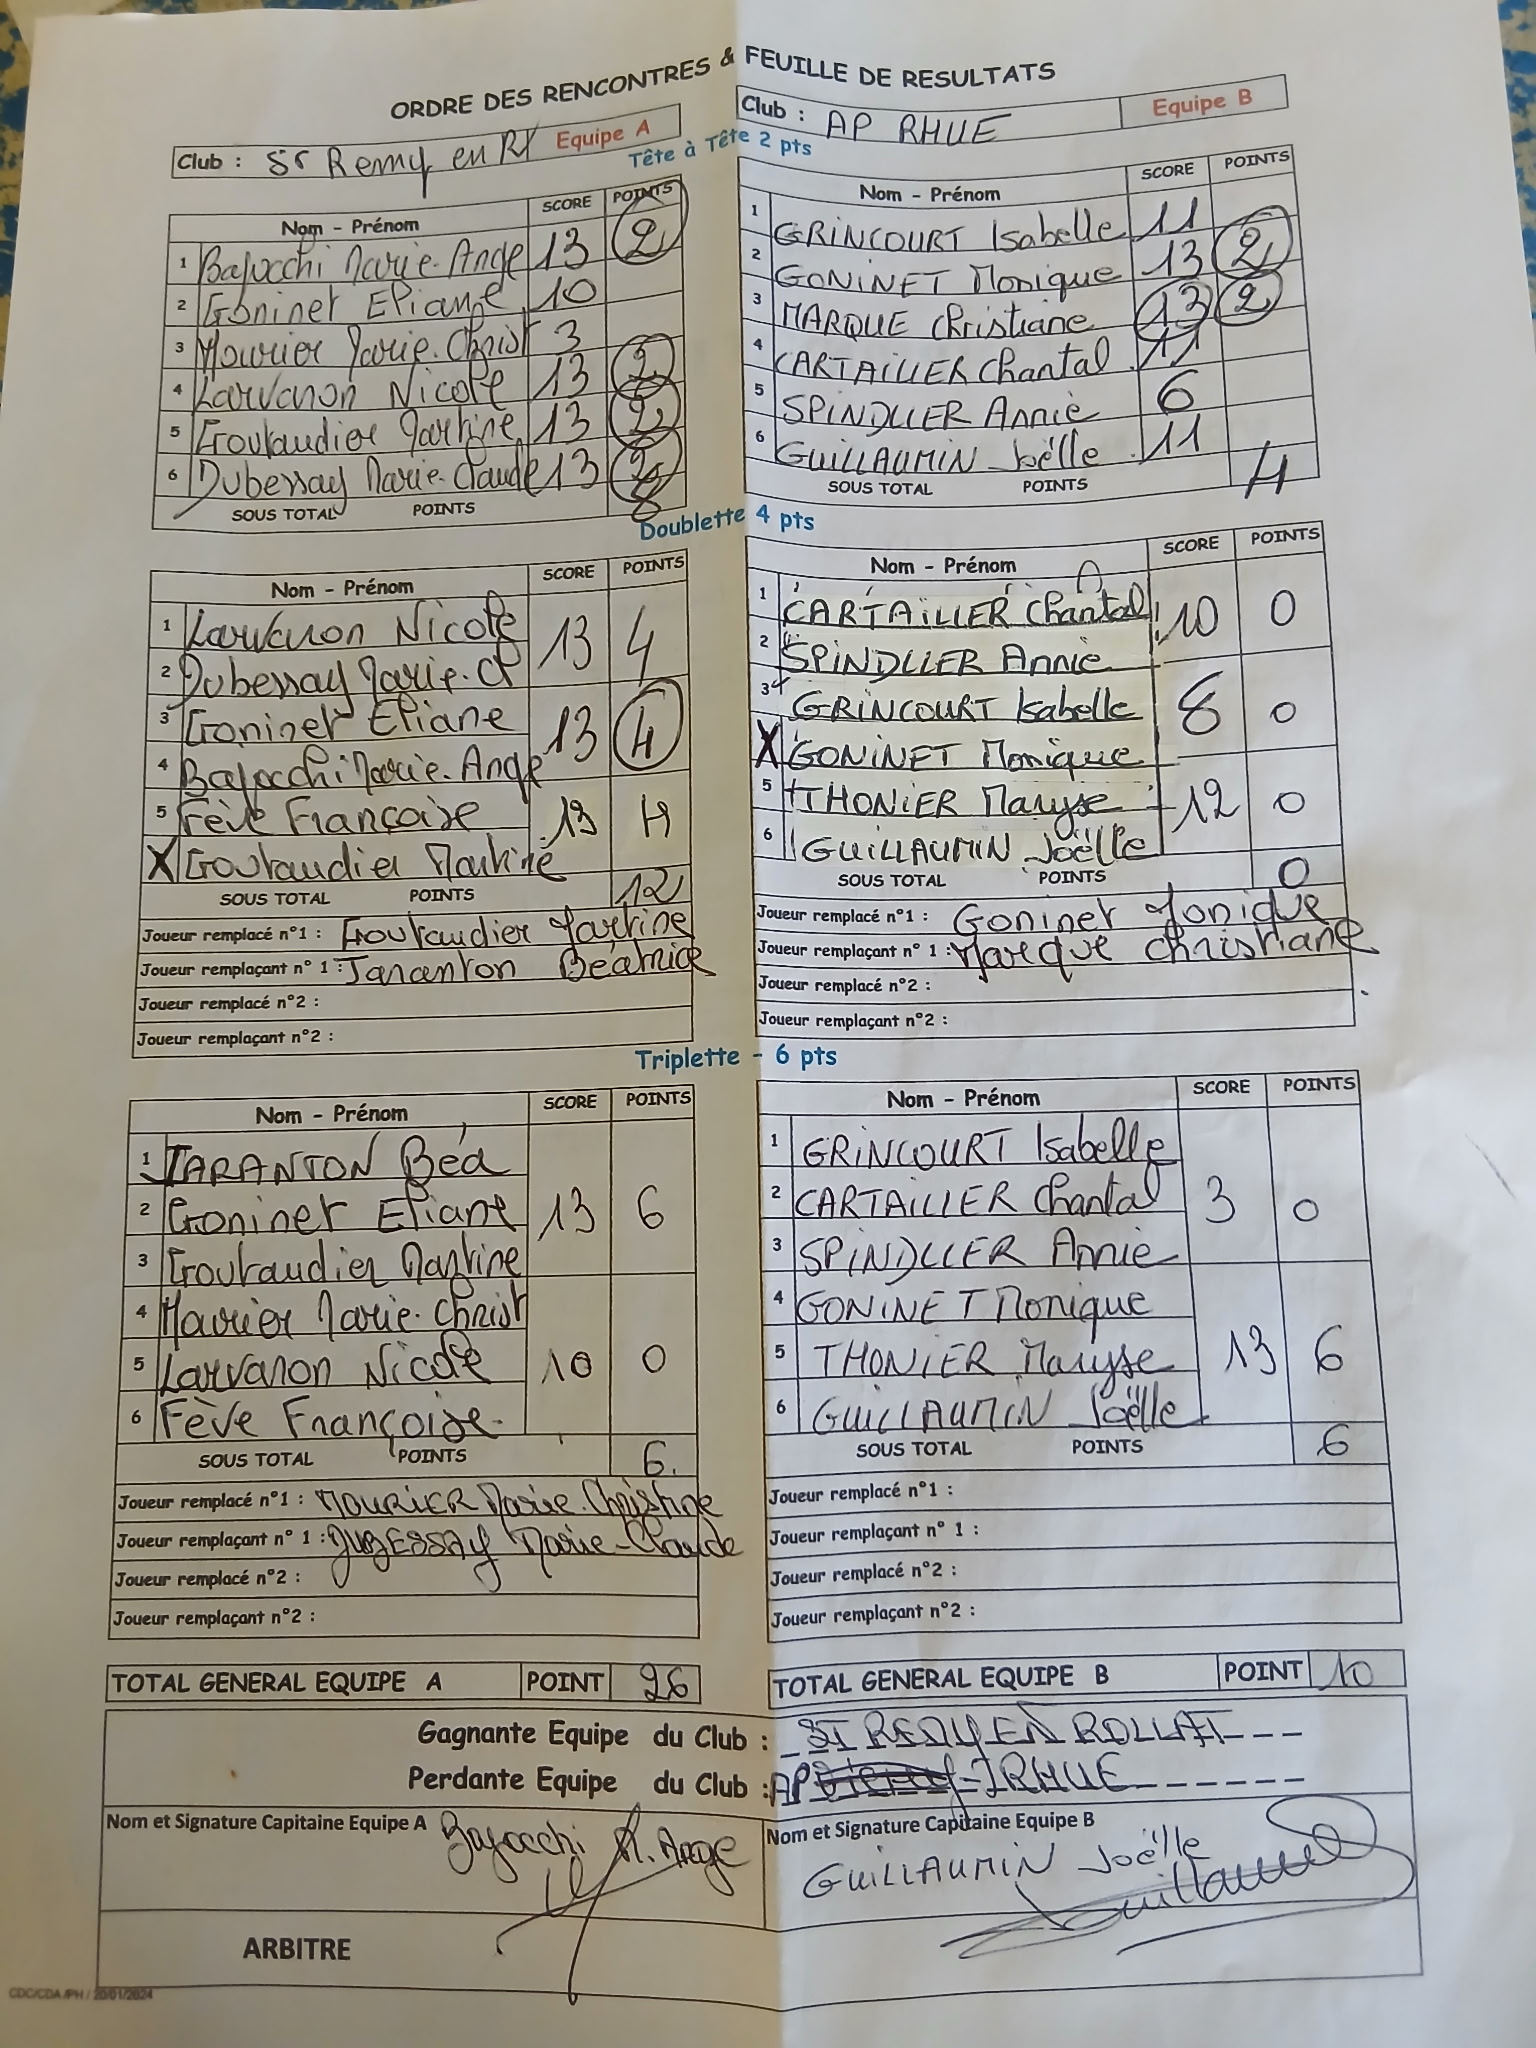 ORDRE DES RENCONTRES & FEUILLE DE RESULTATS
Club : St Remy en R/ Equipe A
Club : AP RHUE Equipe B
Tête à Tête 2 pts
Nom - Prénom SCORE POINTS
1 Bajocchi Marie-Ange 13 2
2 Goninet Eliane 10
3 Mourier Marie-Christ 3
4 Larvaron Nicole 13 2
5 Goutaudier Martine 13 2
6 Dubessay Marie-Claude 13 2
SOUS TOTAL POINTS 8
Nom - Prénom SCORE POINTS
1 GRINCOURT Isabelle 11
2 GONINET Monique 13 2
3 MARQUE Christiane 13 2
4 CARTAILLER Chantal 11
5 SPINDLLER Annie 6
6 GUILLAUMIN Joëlle 11
SOUS TOTAL POINTS 4
Doublette 4 pts
Nom - Prénom SCORE POINTS
1 Larvaron Nicole 13 4
2 Dubessay Marie-Cl
3 Goninet Eliane 13 4
4 Bajocchi Marie-Ange
5 Fève Françoise 13 4
X Goutaudier Martine
SOUS TOTAL POINTS 12
Joueur remplacé n°1 : Goutaudier Martine
Joueur remplaçant n° 1 : Taranton Béatrice
Joueur remplacé n°2 :
Joueur remplaçant n°2 :
Nom - Prénom SCORE POINTS
1 CARTAILLER Chantal 10 0
2 SPINDLLER Annie
3 GRINCOURT Isabelle 8 0
X GONINET Monique
5 THONIER Maryse 12 0
6 GUILLAUMIN Joëlle
SOUS TOTAL POINTS 0
Joueur remplacé n°1 : Goninet Monique
Joueur remplaçant n° 1 : Marque Christiane
Joueur remplacé n°2 :
Joueur remplaçant n°2 :
Triplette - 6 pts
Nom - Prénom SCORE POINTS
1 TARANTON Béa
2 Goninet Eliane 13 6
3 Goutaudier Martine
4 Mourier Marie-Christ
5 Larvaron Nicole 10 0
6 Fève Françoise
SOUS TOTAL POINTS 6
Joueur remplacé n°1 : MOURIER Marie-Christine
Joueur remplaçant n° 1 : DUBESSAY Marie-Claude
Joueur remplacé n°2 :
Joueur remplaçant n°2 :
Nom - Prénom SCORE POINTS
1 GRINCOURT Isabelle
2 CARTAILLER Chantal 3 0
3 SPINDLLER Annie
4 GONINET Monique
5 THONIER Maryse 13 6
6 GUILLAUMIN Joëlle
SOUS TOTAL POINTS 6
Joueur remplacé n°1 :
Joueur remplaçant n° 1 :
Joueur remplacé n°2 :
Joueur remplaçant n°2 :
TOTAL GENERAL EQUIPE A POINT 26
TOTAL GENERAL EQUIPE B POINT 10
Gagnante Equipe du Club : ST REMY EN ROLLAT
Perdante Equipe du Club : AP RHUE
Nom et Signature Capitaine Equipe A Bajocchi M. Ange
Nom et Signature Capitaine Equipe B
GUILLAUMIN Joëlle
Guillaumin
ARBITRE
CDC/CDA /PH / 20/01/2024